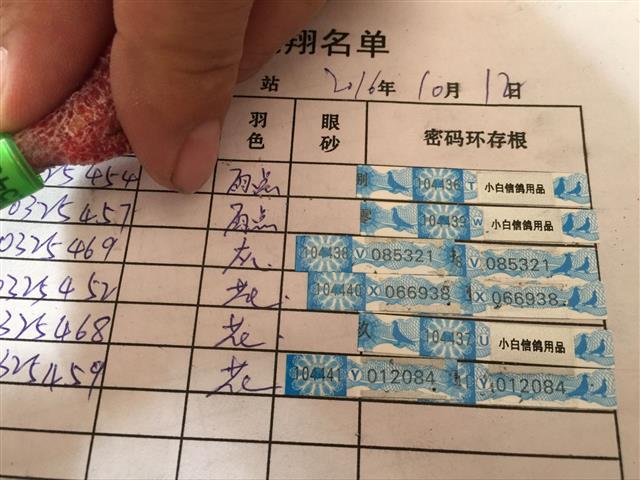 翔名单
站 2016年 10月 12日
羽色 眼砂 密码环存根
25454 雨点 104436 T 小白信鸽用品
0325457 雨点 104439 W 小白信鸽用品
0325469 灰 104438 V 085321 V 085321
0325452 花 104440 X 066938 X 066938
325468 花 104437 U 小白信鸽用品
325459 花 104441 Y 012084 Y 012084